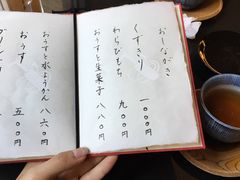 おしながき
くずきり 一〇〇〇円
わらびもち 九〇〇円
おうすと生菓子 八八〇円
おうすと水ようかん 八六〇円
おうす 五〇〇円